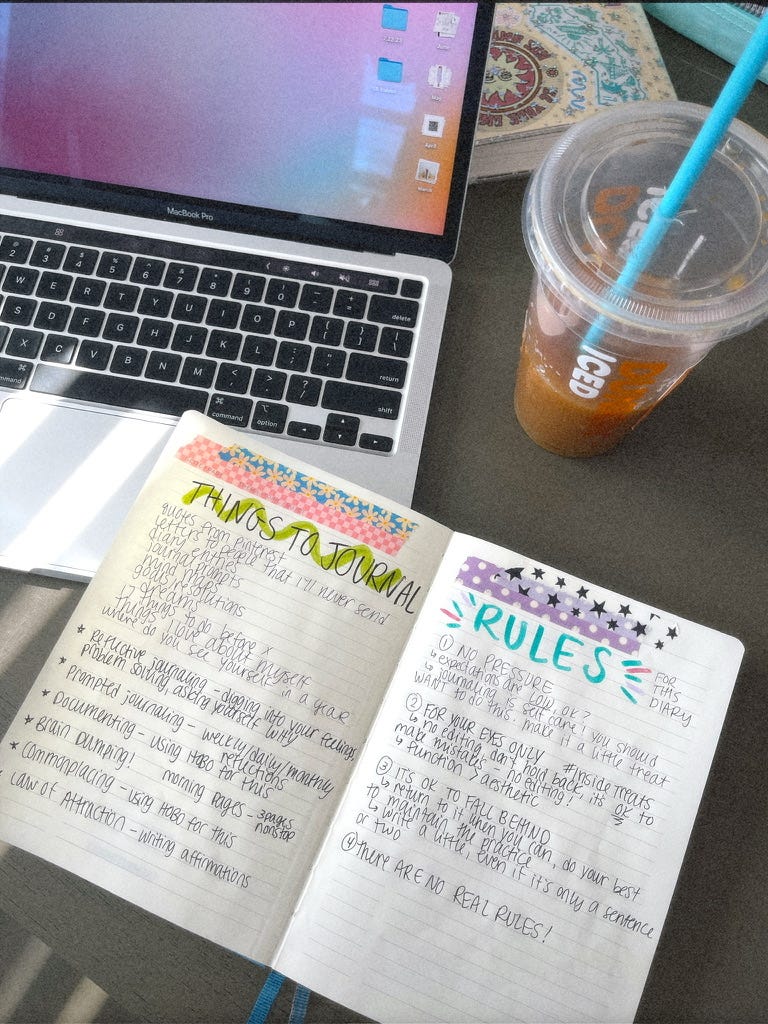 MacBook Pro
delete
return
shift
command
option
command
ICED
THINGS TO JOURNAL
quotes from pinterest
letters to people that i'll never send
diary entries
journal prompts
mind maps
goals/resolutions
dreams
things to do before x
things i love about myself
where do you see yourself in a year
★ Reflective journaling - digging into your feelings,
problem solving, asking yourself why
★ Prompted journaling - weekly/daily/monthly
reflections
★ Documenting - using HOBO for this
★ Brain Dumping! morning pages - 3 pages
nonstop
★ Commonplacing - using HOBO for this
Law of Attraction - writing affirmations
RULES
FOR
THIS
DIARY
① NO PRESSURE
↳ expectations are low, ok?
↳ journaling is self care! you should
WANT to do this. make it a little treat
#insidetreats
② FOR YOUR EYES ONLY
↳ no editing, don't hold back, its ok to
make mistakes - no editing!
↳ function > aesthetic
③ ITS OK TO FALL BEHIND
↳ return to it when you can, do your best
to maintain the practice
↳ write a little, even if it's only a sentence
or two
④ there ARE NO REAL RULES!